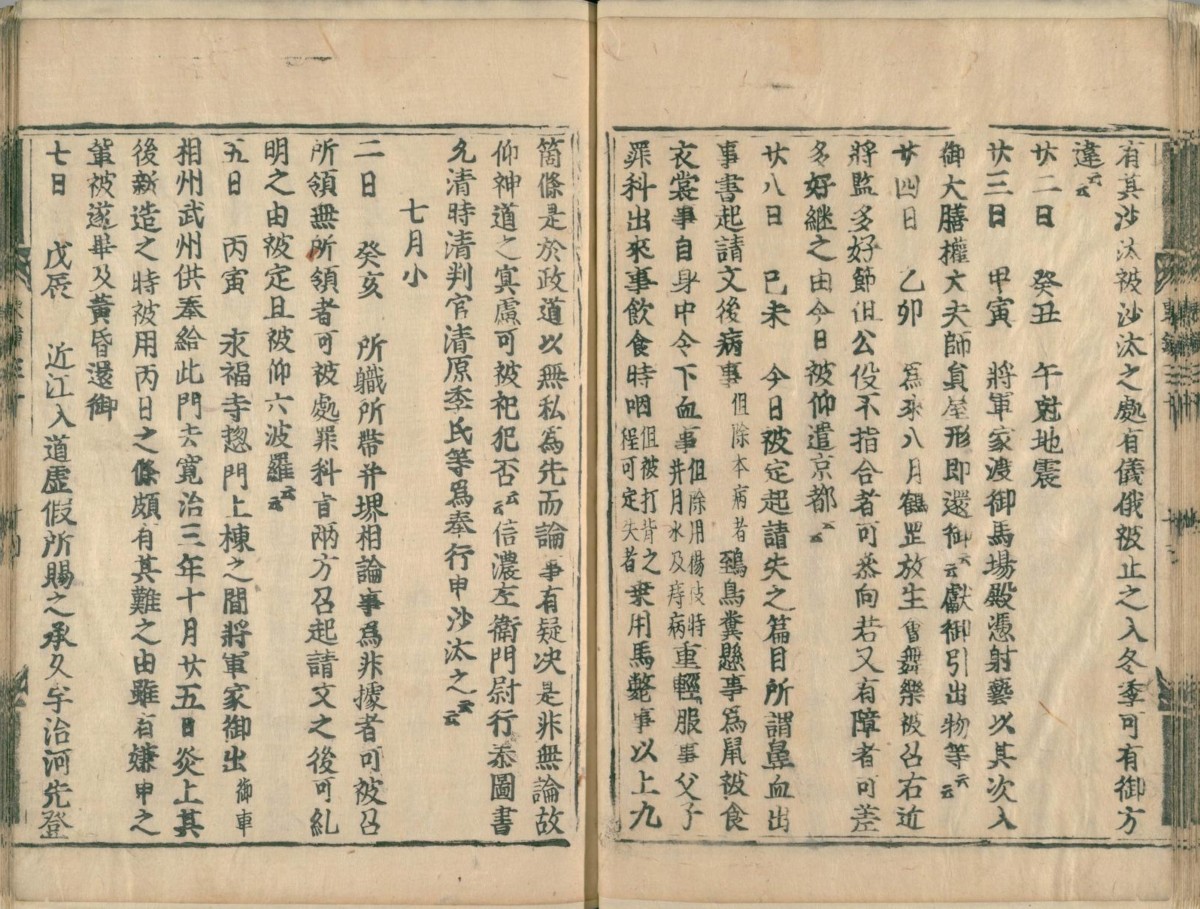 有其沙汰被沙汰之處有儀俄被止之入冬季可有御方
違云云
廿二日 癸丑 午尅地震
廿三日 甲寅 將軍家渡御馬場殿憑射藝以其次入
御大膳權大夫師貟屋形即還御云云獻御引出物等云云
廿四日 乙卯 爲來八月鶴罡放生會舞樂被召右近
將監多好節但公役不指合者可叅向若又有障者可差
多好継之由今日被仰遣京都云云
廿八日 己未 今日被定起請失之篇目所謂鼻血出
事書起請文後病事但除本病者鵄烏糞懸事爲鼠被食
衣裳事自身中令下血事但除用楊枝時并月水及痔病重輕服事父子
罪科出來事飲食時咽但被打背之程可定失者乗用馬斃事以上九
箇條是於政道以無私爲先而論事有疑决是非無論故
仰神道之冥慮可被祀犯否云云信濃左衛門尉行泰圖書
允清時清判官清原季氏等爲奉行申沙汰之云云
七月小
二日 癸亥 所職所帶并堺相論事爲非據者可被召
所領無所領者可被處罪科肓兩方召起請文之後可糺
明之由被定且被仰六波羅云云
五日 丙寅 永福寺惣門上棟之間將軍家御出御車
相州武州供奉給此門去寛治三年十月廿五日炎上其
後新造之時被用丙日之條頗有其難之由雖有嫌申之
軰被遂畢及黄昏還御
七日 戊辰 近江入道虚假所賜之承久宇治河先登